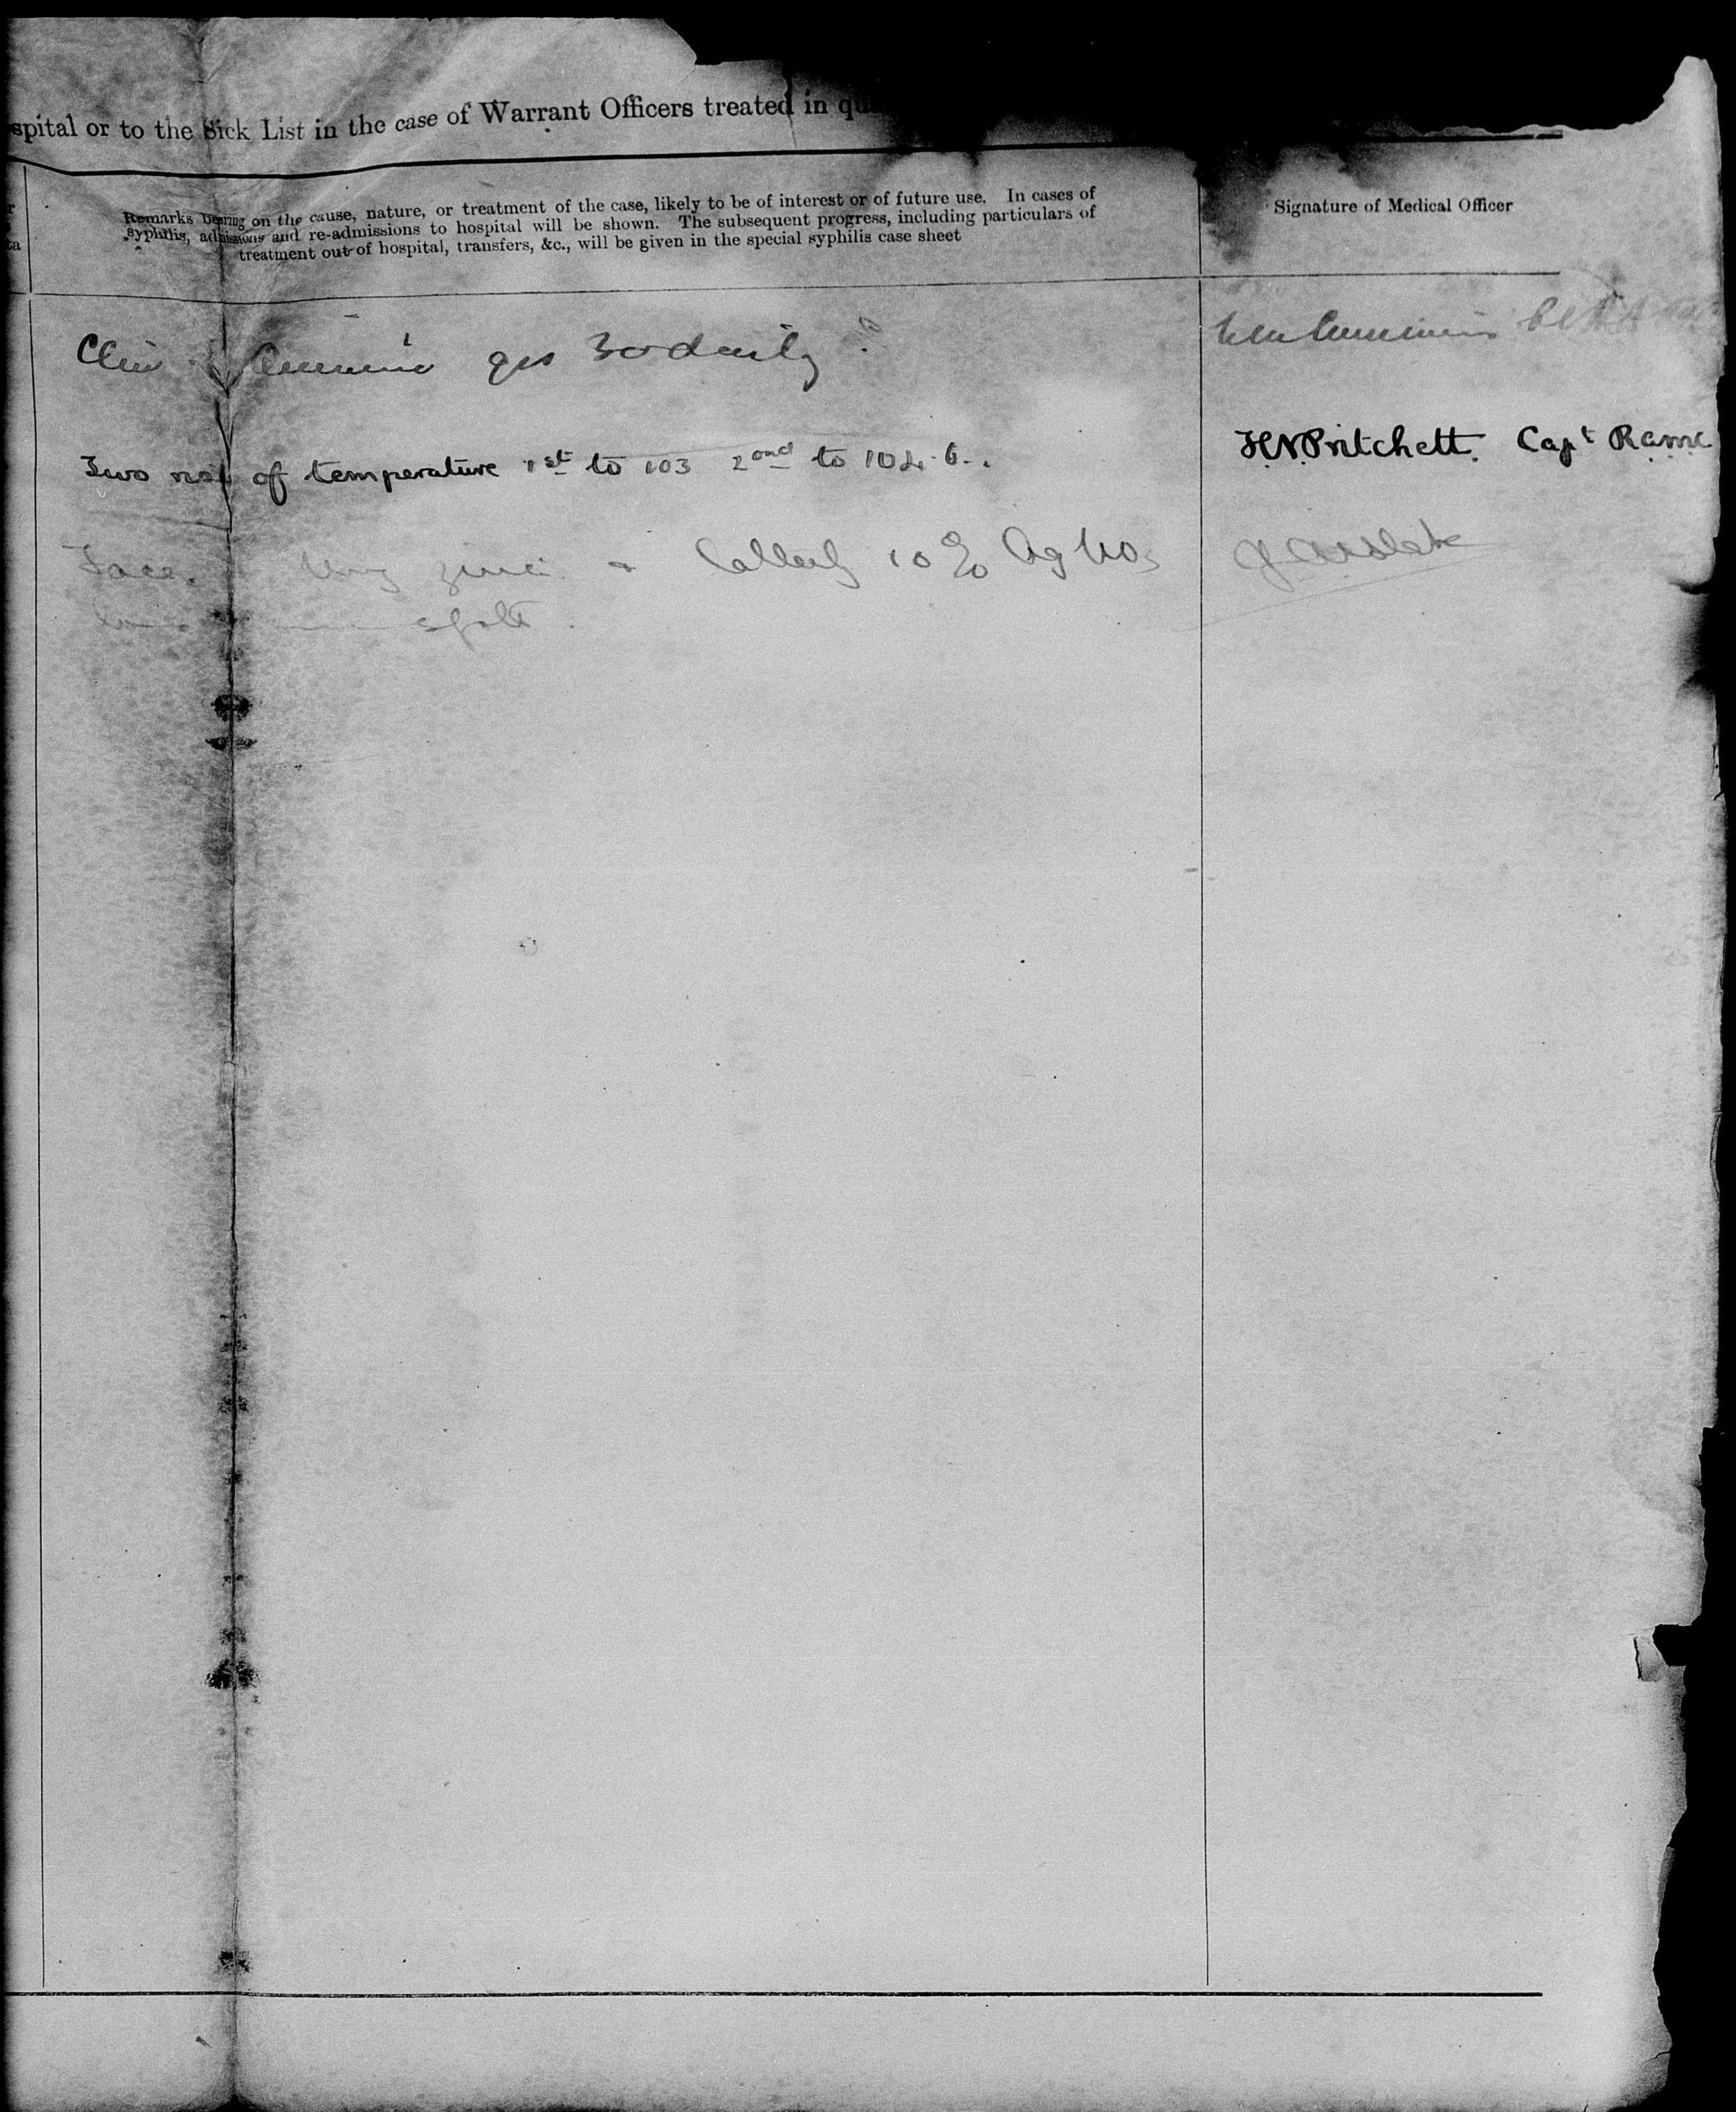 spital or to the Sick List in the case of Warrant Officers treated in qu
Remarks bearing on the cause, nature, or treatment of the case, likely to be of interest or of future use. In cases of
syphilis, admissions and re-admissions to hospital will be shown. The subsequent progress, including particulars of
treatment out of hospital, transfers, &c., will be given in the special syphilis case sheet
Signature of Medical Officer
r
ta
grs 30 daily
Two rises of temperature 1st to 103 2ond to 104.6.
H.N.Pritchett. Capt R.a.m.c
Face. Ung zinci 10% Ag NO3
spots.